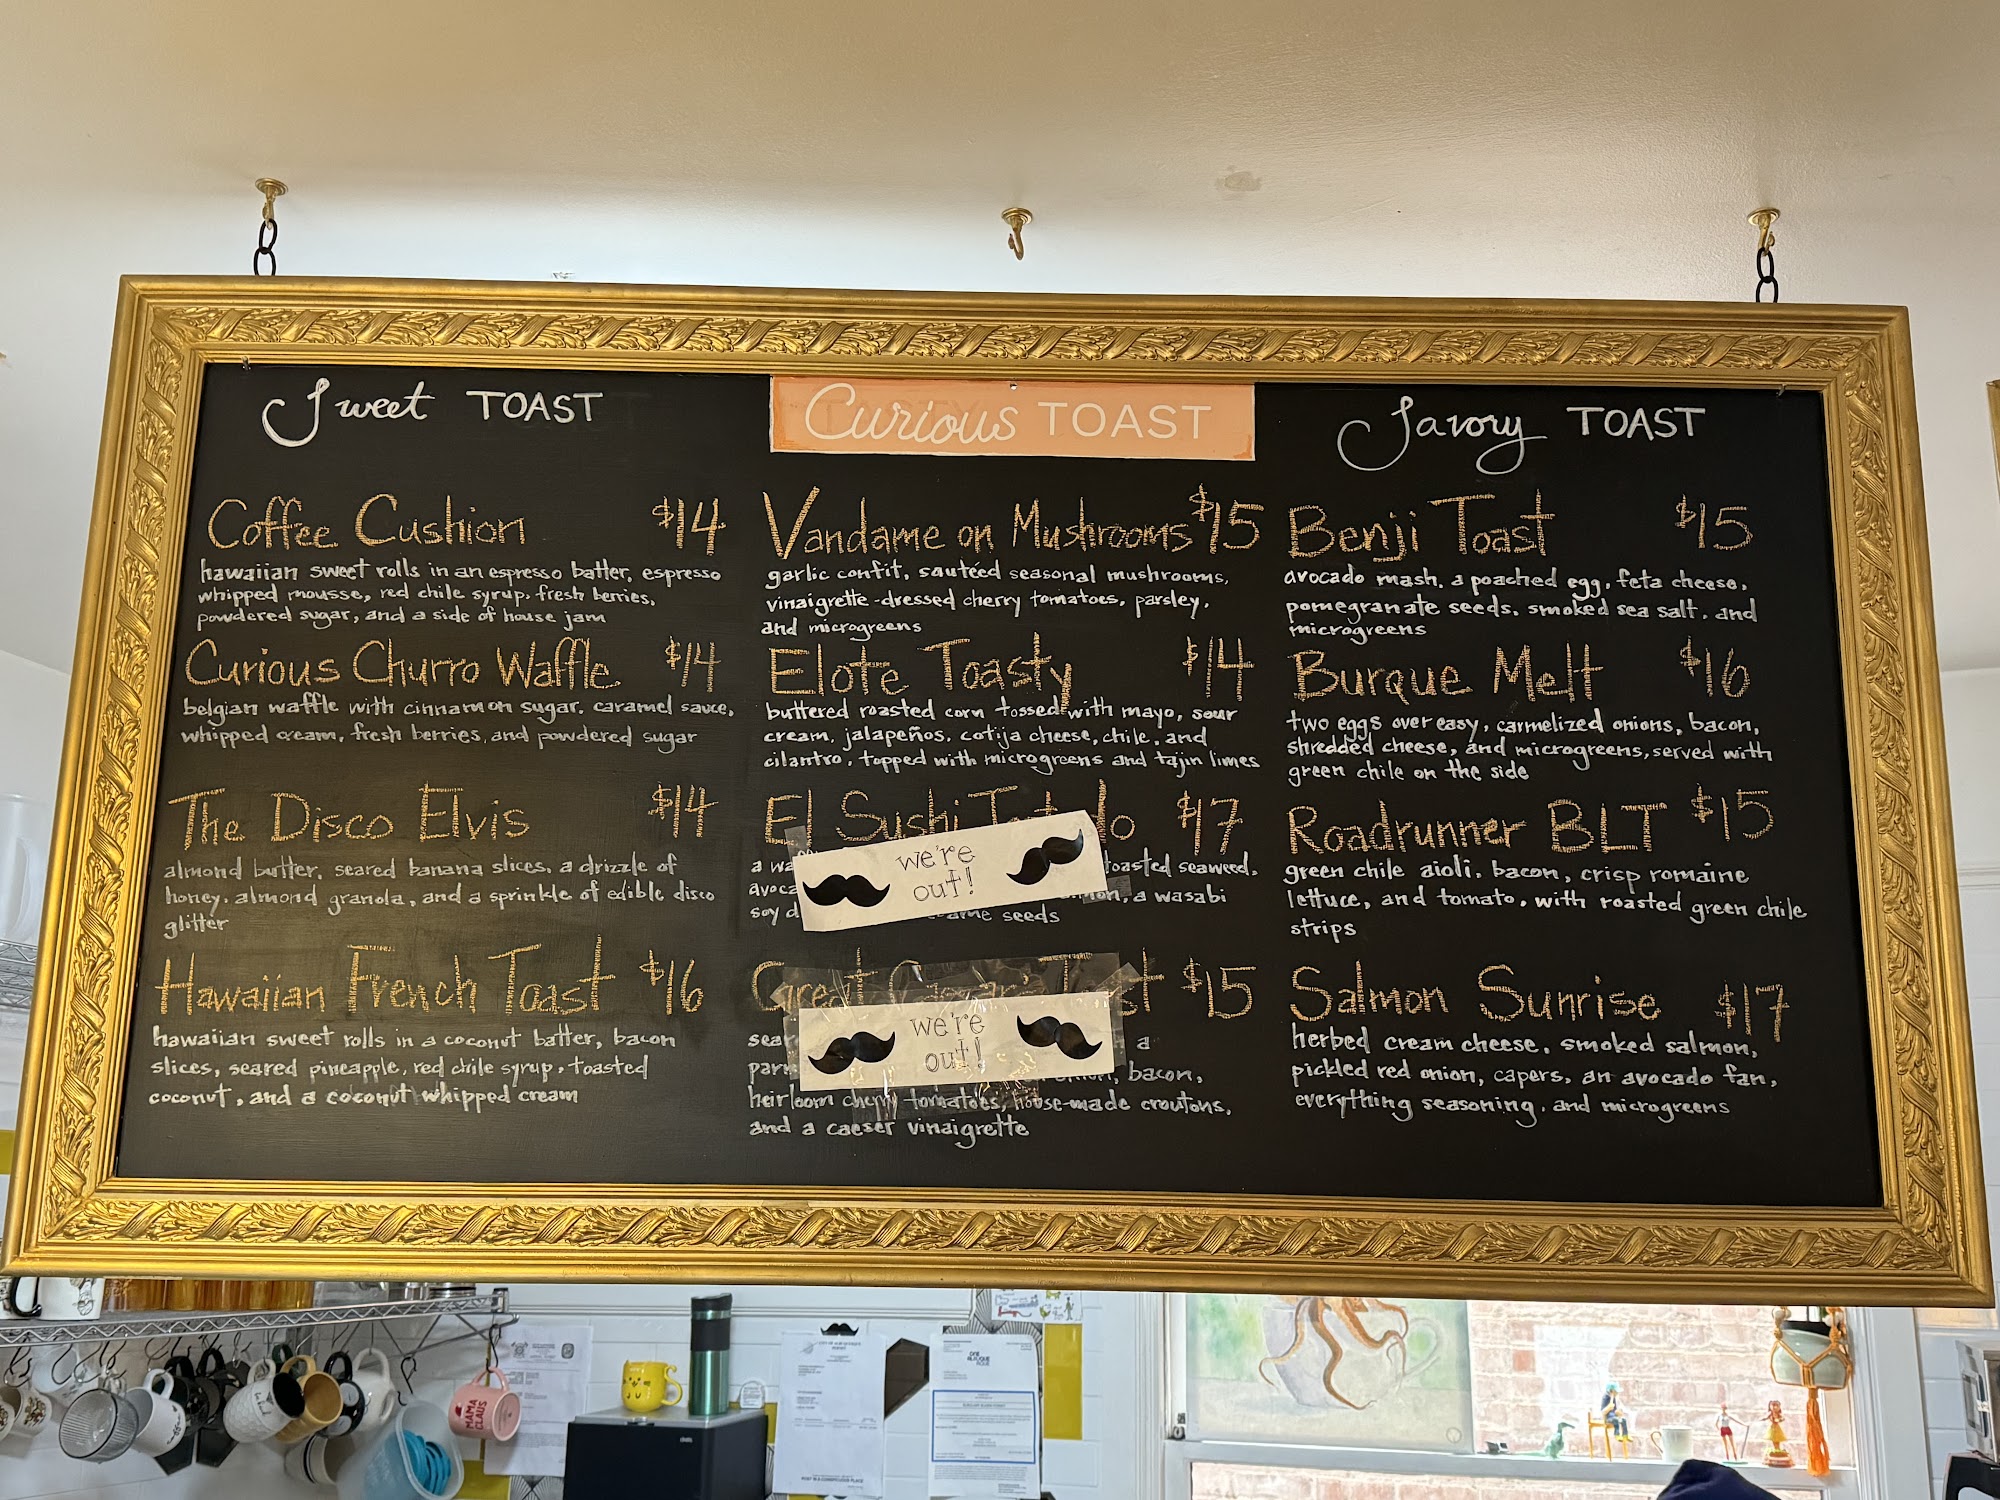 Sweet TOAST
Coffee Cushion $14
hawaiian sweet rolls in an espresso batter, espresso
whipped mousse, red chile syrup, fresh berries,
powdered sugar, and a side of house jam
Curious Churro Waffle $14
belgian waffle with cinnamon sugar, caramel sauce,
whipped cream, fresh berries, and powdered sugar
The Disco Elvis $14
almond butter, seared banana slices, a drizzle of
honey, almond granola, and a sprinkle of edible disco
glitter
Hawaiian French Toast $16
hawaiian sweet rolls in a coconut batter, bacon
slices, seared pineapple, red chile syrup, toasted
coconut, and a coconut whipped cream
Curious TOAST
Vandame on Mushrooms $15
garlic confit, sautéed seasonal mushrooms,
vinaigrette-dressed cherry tomatoes, parsley,
and microgreens
Elote Toasty $14
buttered roasted corn tossed with mayo, sour
cream, jalapeños, cotija cheese, chile, and
cilantro, topped with microgreens and tajin limes
El Sushi $17
a toasted seaweed,
a wasabi
soy seeds
we're
out!
$15
a
bacon,
heirloom cherry tomatoes, house-made croutons,
and a caeser vinaigrette
we're
out!
Savory TOAST
Benji Toast $15
avocado mash, a poached egg, feta cheese,
pomegranate seeds, smoked sea salt, and
microgreens
Burque Melt $16
two eggs over easy, carmelized onions, bacon,
shredded cheese, and microgreens, served with
green chile on the side
Roadrunner BLT $15
green chile aioli, bacon, crisp romaine
lettuce, and tomato, with roasted green chile
strips
Salmon Sunrise $17
herbed cream cheese, smoked salmon,
pickled red onion, capers, an avocado fan,
everything seasoning, and microgreens
MAMA
CLAUS